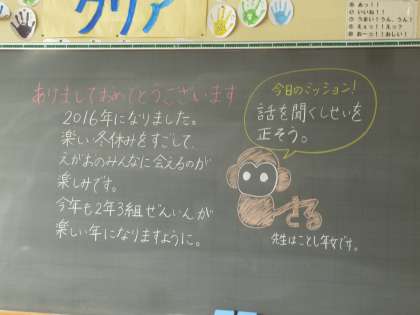 クリア
① あっ！！
② いいね！！
③ うまい！うん、うん！
④ えぇっ！！えぇ？
⑤ おーっ！！おしい！
ありましておめでとうございます
2016年になりました。
楽しい冬休みをすごして、
えがおのみんなに会えるのが
楽しみです。
今年も2年3組ぜんいんが
楽しい年になりますように。
今日のミッション！
話を聞くしせいを
正そう。
さる
先生はことし年女です。